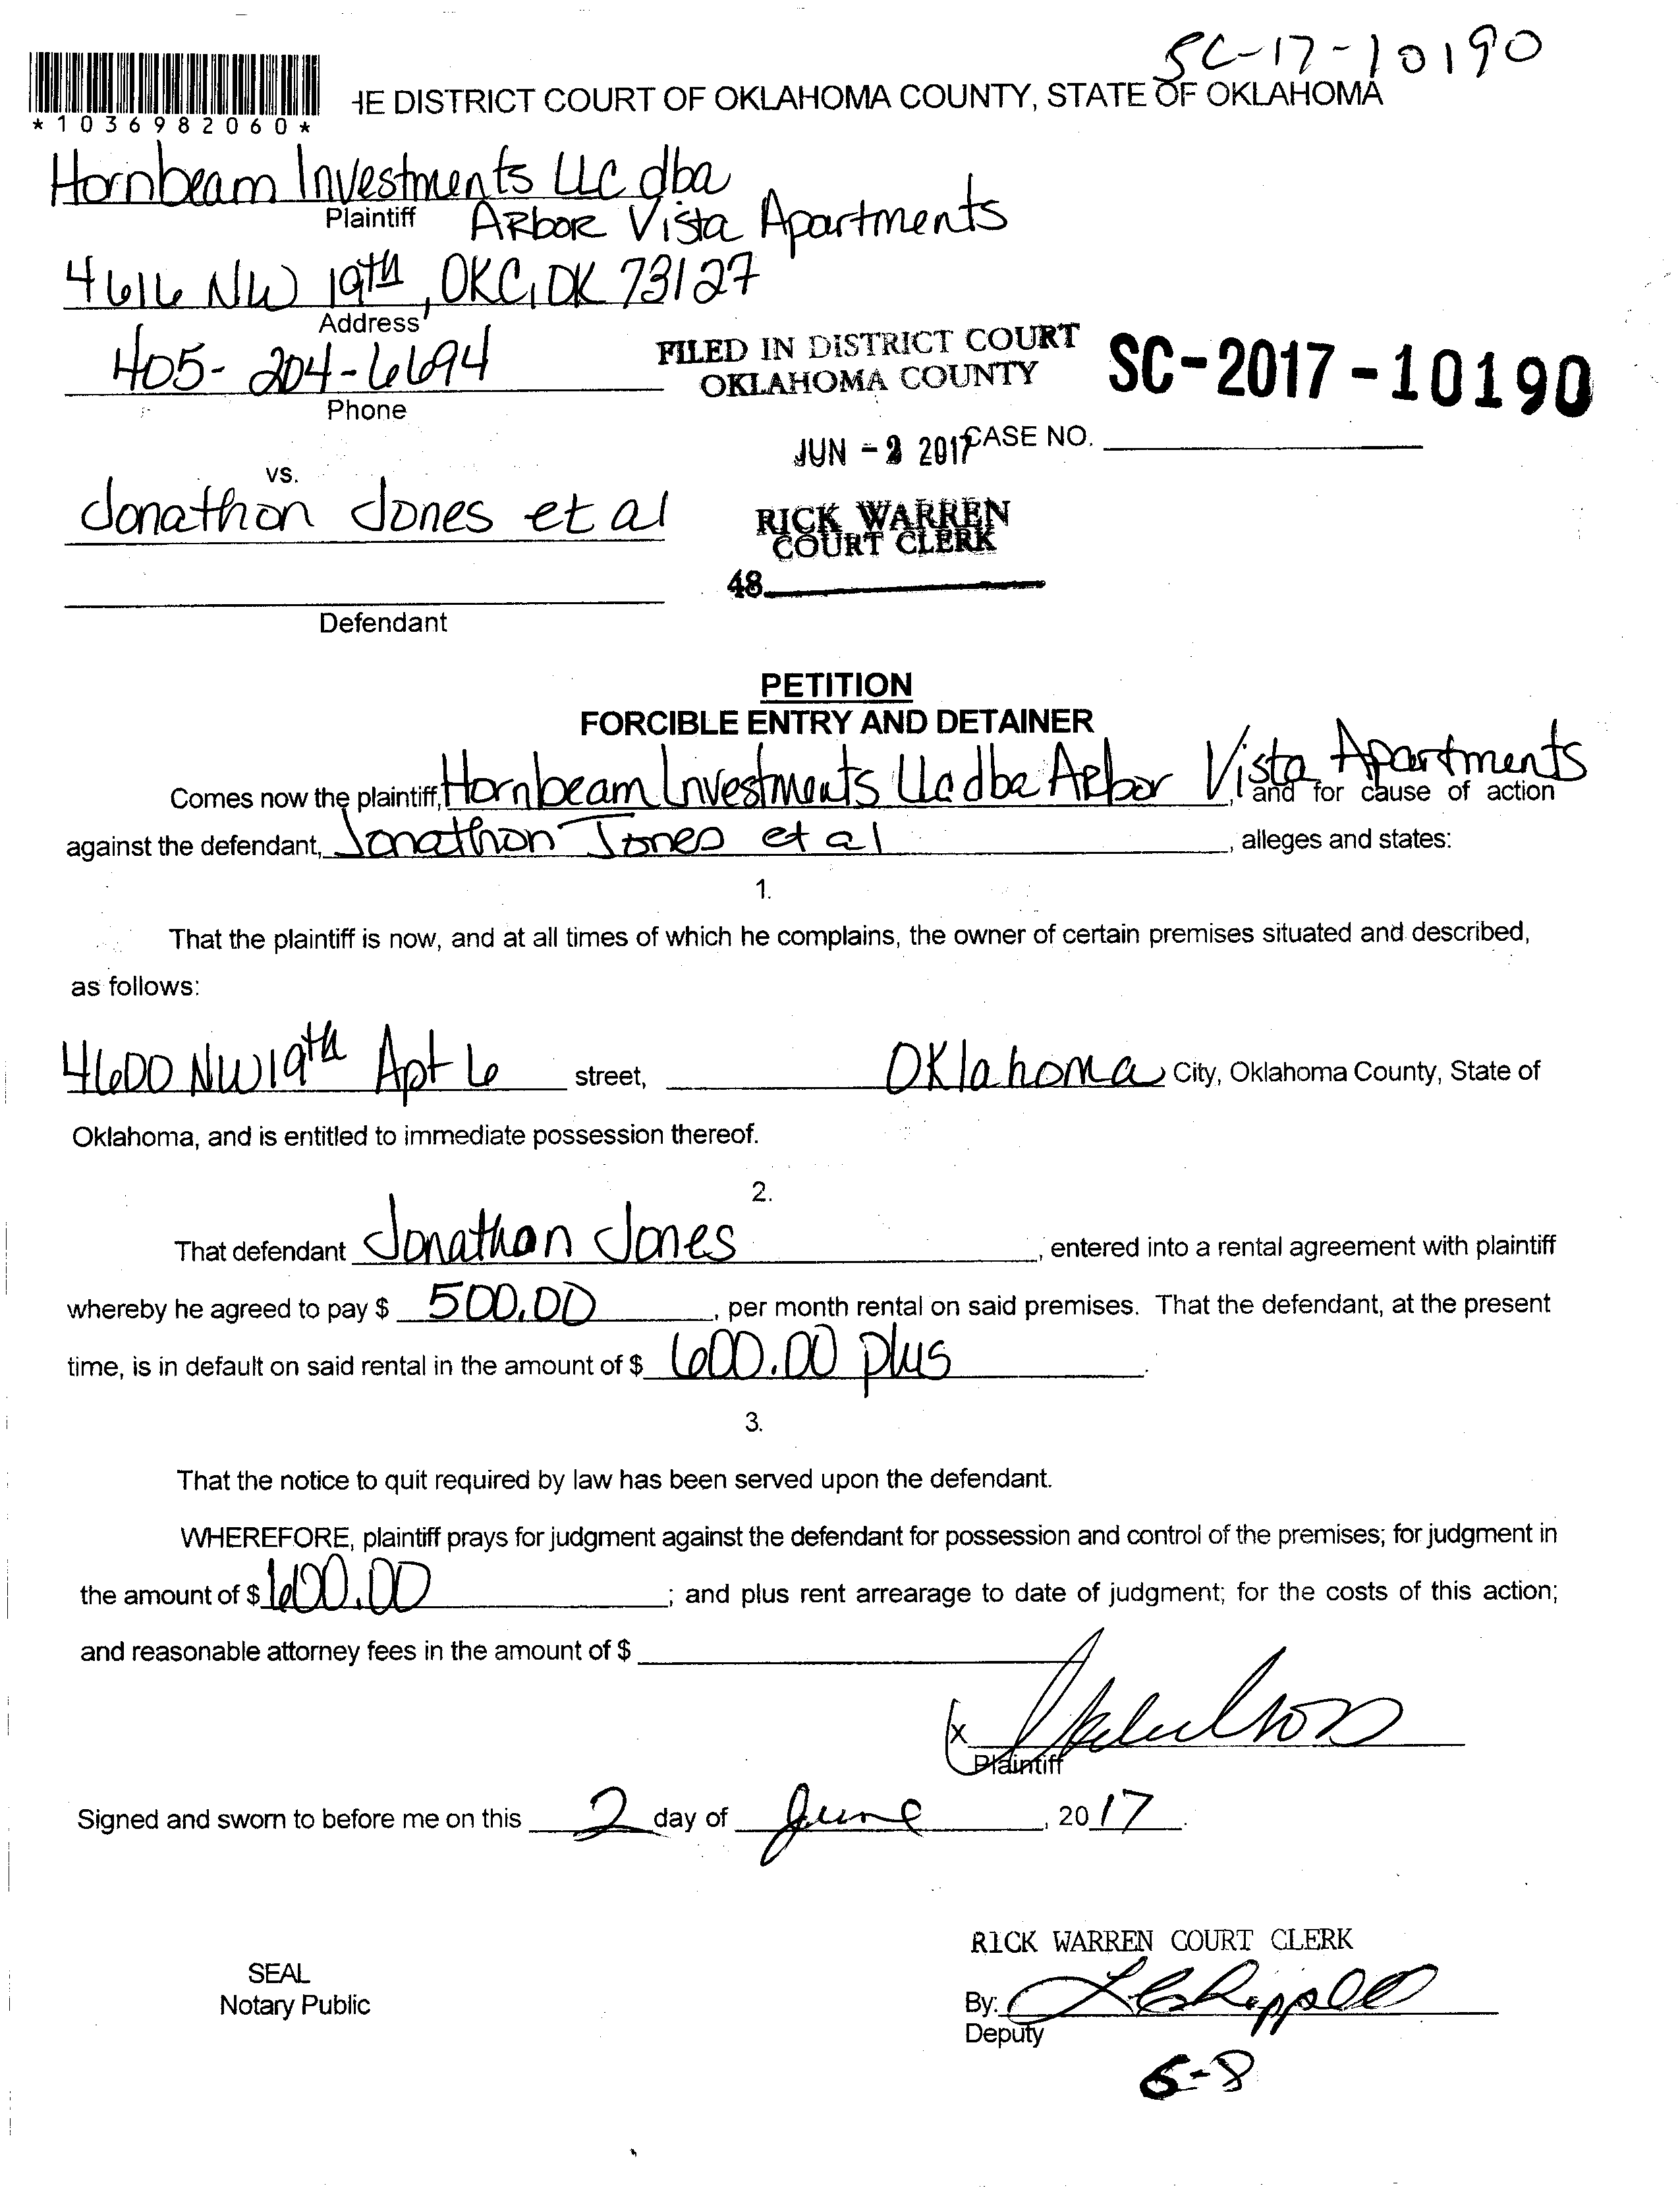 SC-17-10190
HE DISTRICT COURT OF OKLAHOMA COUNTY, STATE OF OKLAHOMA
*1036982060*
Hornbeam Investments LLC dba
Plaintiff
Arbor Vista Apartments
4616 NW 19th, OKC, OK 73127
Address
405-204-6694
Phone
FILED IN DISTRICT COURT
OKLAHOMA COUNTY
SC-2017-10190
JUN - 2 2017
CASE NO.
vs.
Jonathon Jones et al
RICK WARREN
COURT CLERK
48
Defendant
PETITION
FORCIBLE ENTRY AND DETAINER
Comes now the plaintiff, Hornbeam Investments LLC dba Arbor Vista Apartments, and for cause of action
against the defendant, Jonathon Jones et al, alleges and states:
1.
That the plaintiff is now, and at all times of which he complains, the owner of certain premises situated and described,
as follows:
4600 NW 19th Apt 6 street, Oklahoma City, Oklahoma County, State of
Oklahoma, and is entitled to immediate possession thereof.
2.
That defendant Jonathon Jones, entered into a rental agreement with plaintiff
whereby he agreed to pay $ 500.00, per month rental on said premises. That the defendant, at the present
time, is in default on said rental in the amount of $ 600.00 plus.
3.
That the notice to quit required by law has been served upon the defendant.
WHEREFORE, plaintiff prays for judgment against the defendant for possession and control of the premises; for judgment in
the amount of $ 600.00; and plus rent arrearage to date of judgment; for the costs of this action;
and reasonable attorney fees in the amount of $
x
Plaintiff
Signed and sworn to before me on this 2 day of June, 2017.
RICK WARREN COURT CLERK
SEAL
Notary Public
By:
Deputy
6-8